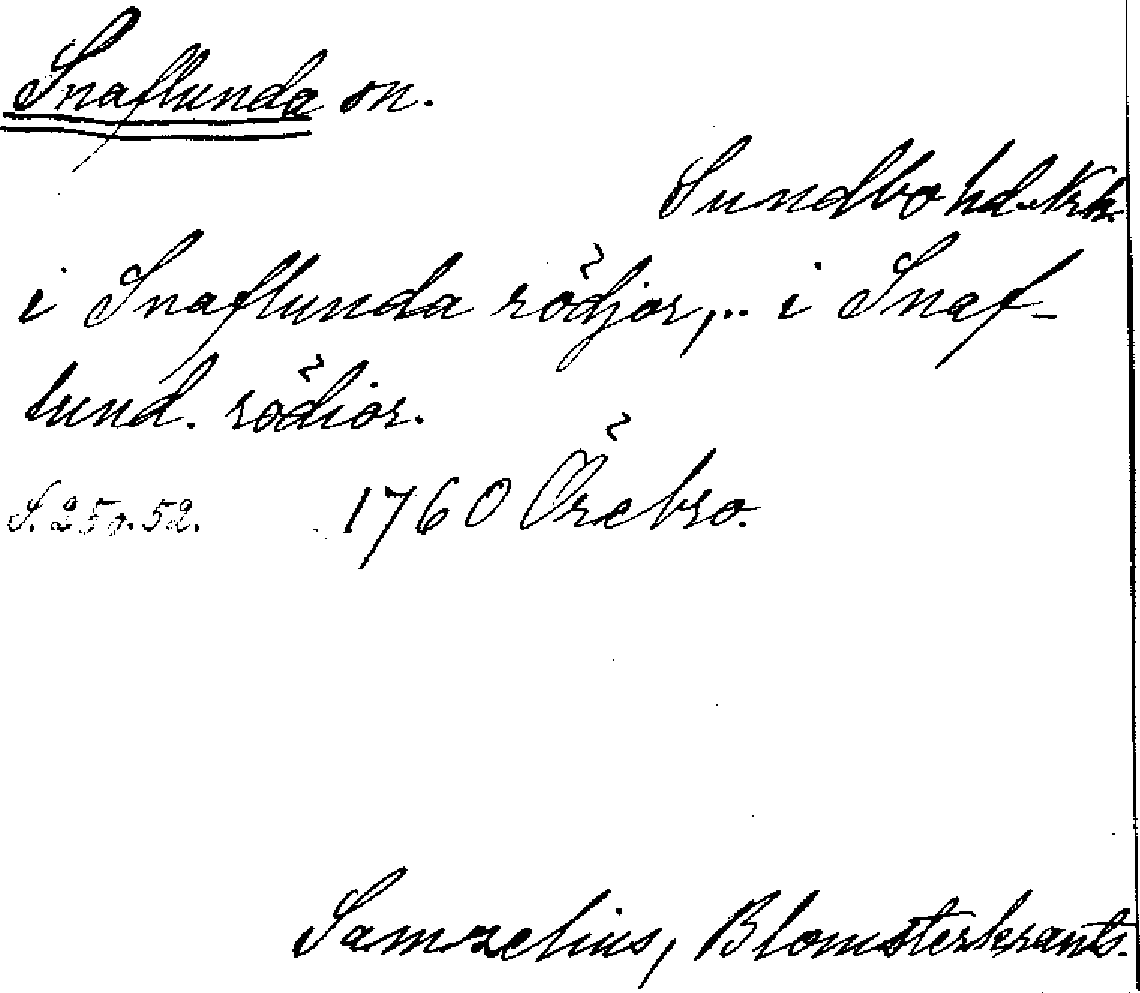 Snaflunda sn.
Sundbo hd. Nrk.
i Snaflunda rödjor,.. i Snaf-
lund. rödior.
S. 25 o. 52. 1760 Örebro.
Samzelius, Blomsterkrants.